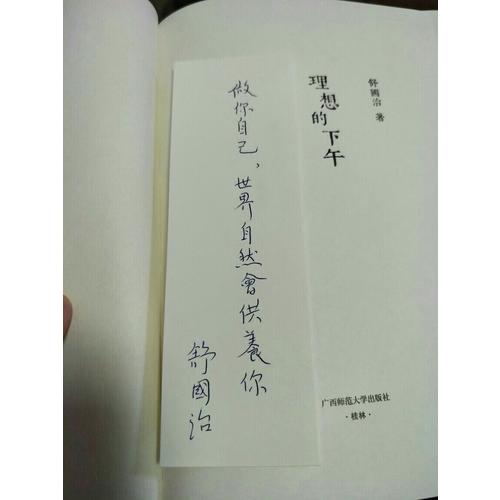 做你自己，世界自然會供養你
舒國治
理想的下午
舒國治 著
广西师范大学出版社
·桂林·